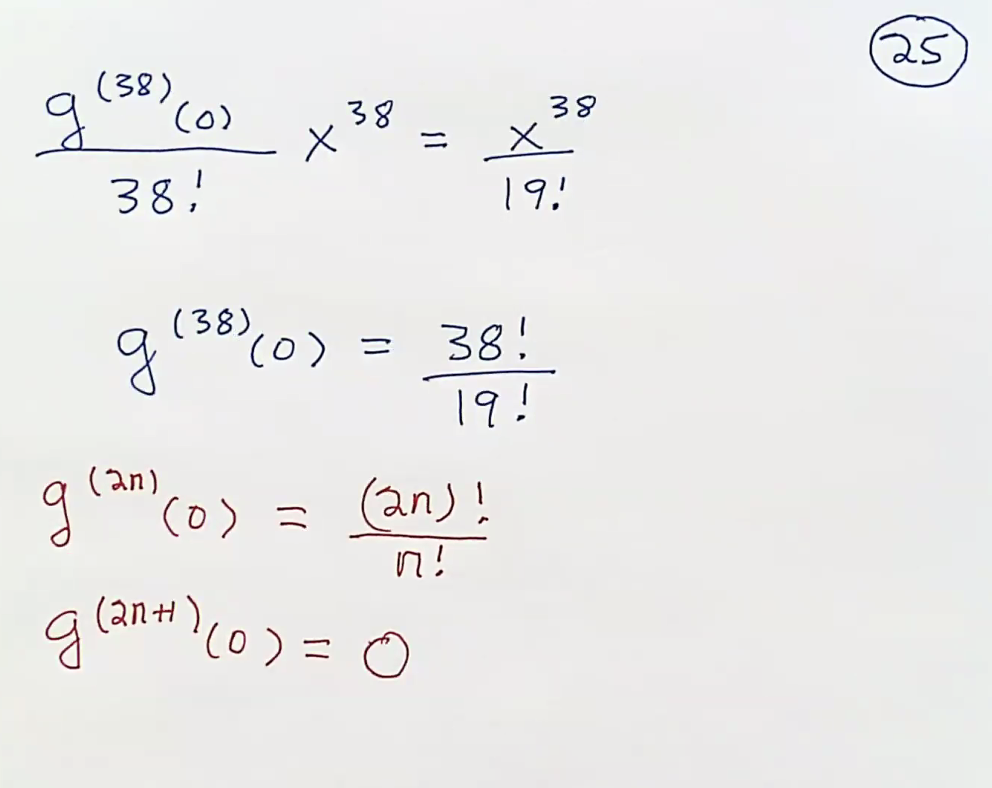 25
g^(38)(0)/38! x^38 = x^38/19!
g^(38)(0) = 38!/19!
g^(2n)(0) = (2n)!/n!
g^(2n+1)(0) = 0